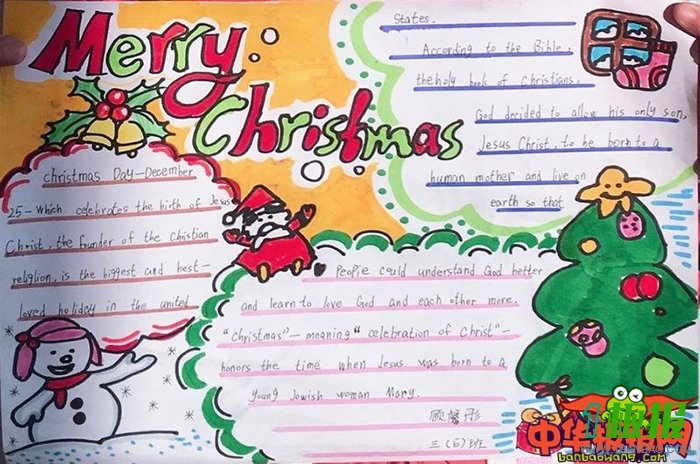 Merry
Christmas
christmas Day—December
25-Which celebrates the birth of Jesus
Christ, the funder of the Chistian
religion, is the biggest and best-
loved holiday in the united
States.
According to the Bible,
the holy book of Christians,
God decided to allow his only son,
Jesus Christ, to be born to a
human mother and live on
earth so that
Peopie could understand God better
and learn to love God and each other more.
"christmas"— meaning "celebration of Christ"—
honors the time when Jesus was born to a
young Jowish woman Mary.
三(6)班
中华板报网
banbaowang.com